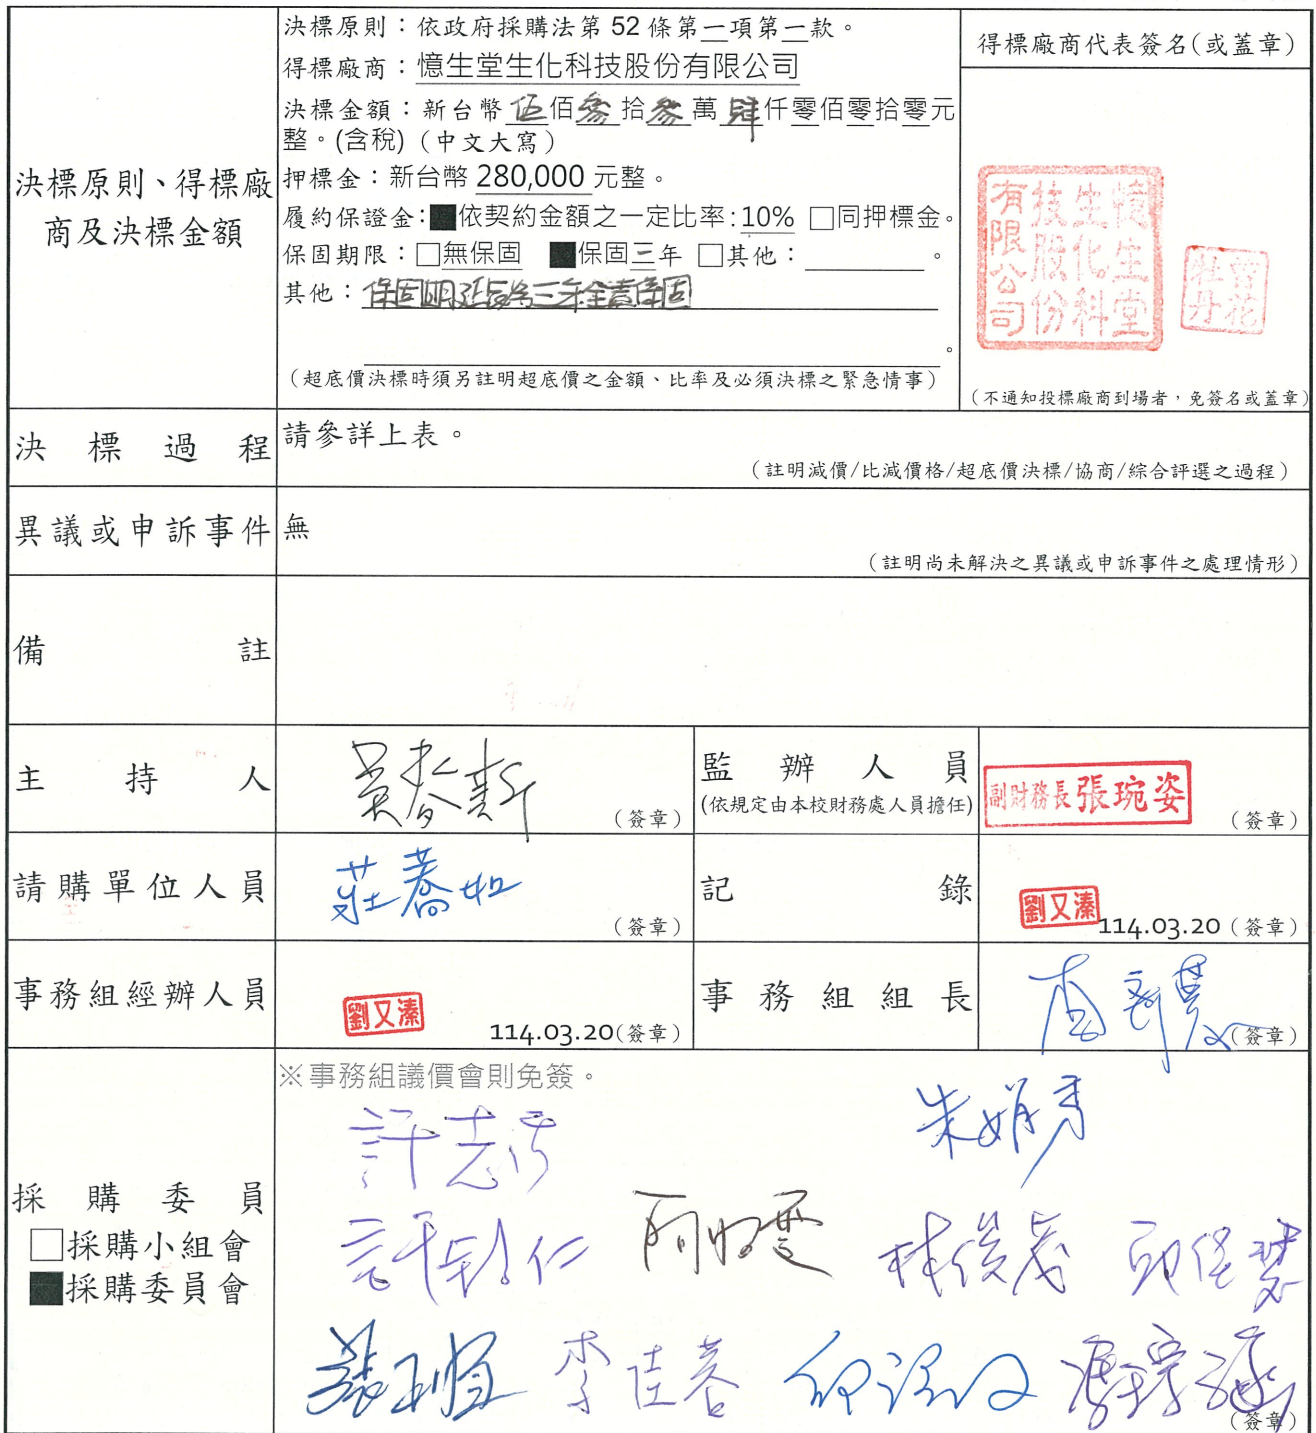 決標原則、得標廠
商及決標金額
決標原則：依政府採購法第 52 條第一項第一款。
得標廠商：憶生堂生化科技股份有限公司
決標金額：新台幣伍佰參拾參萬肆仟零佰零拾零元
整。(含稅)（中文大寫）
押標金：新台幣 280,000 元整。
履約保證金:■依契約金額之一定比率:10% □同押標金。
保固期限：□無保固 ■保固三年 □其他：＿＿＿。
其他：保固期延長為三年全責保固
。
（超底價決標時須另註明超底價之金額、比率及必須決標之緊急情事）
得標廠商代表簽名(或蓋章)
憶生堂
生化科
技股份
有限公司
曾花
牡丹
（不通知投標廠商到場者，免簽名或蓋章）
決標過程
請參詳上表。
（註明減價/比減價格/超底價決標/協商/綜合評選之過程）
異議或申訴事件
無
（註明尚未解決之異議或申訴事件之處理情形）
備註
主持人
（簽章）
監辦人員
(依規定由本校財務處人員擔任)
副財務長張琬姿
（簽章）
請購單位人員
莊喬如
（簽章）
記錄
劉又溱
114.03.20（簽章）
事務組經辦人員
劉又溱
114.03.20(簽章)
事務組組長
（簽章）
採購委員
□採購小組會
■採購委員會
※事務組議價會則免簽。
朱娟秀
林俊成
李佳蓉
（簽章）